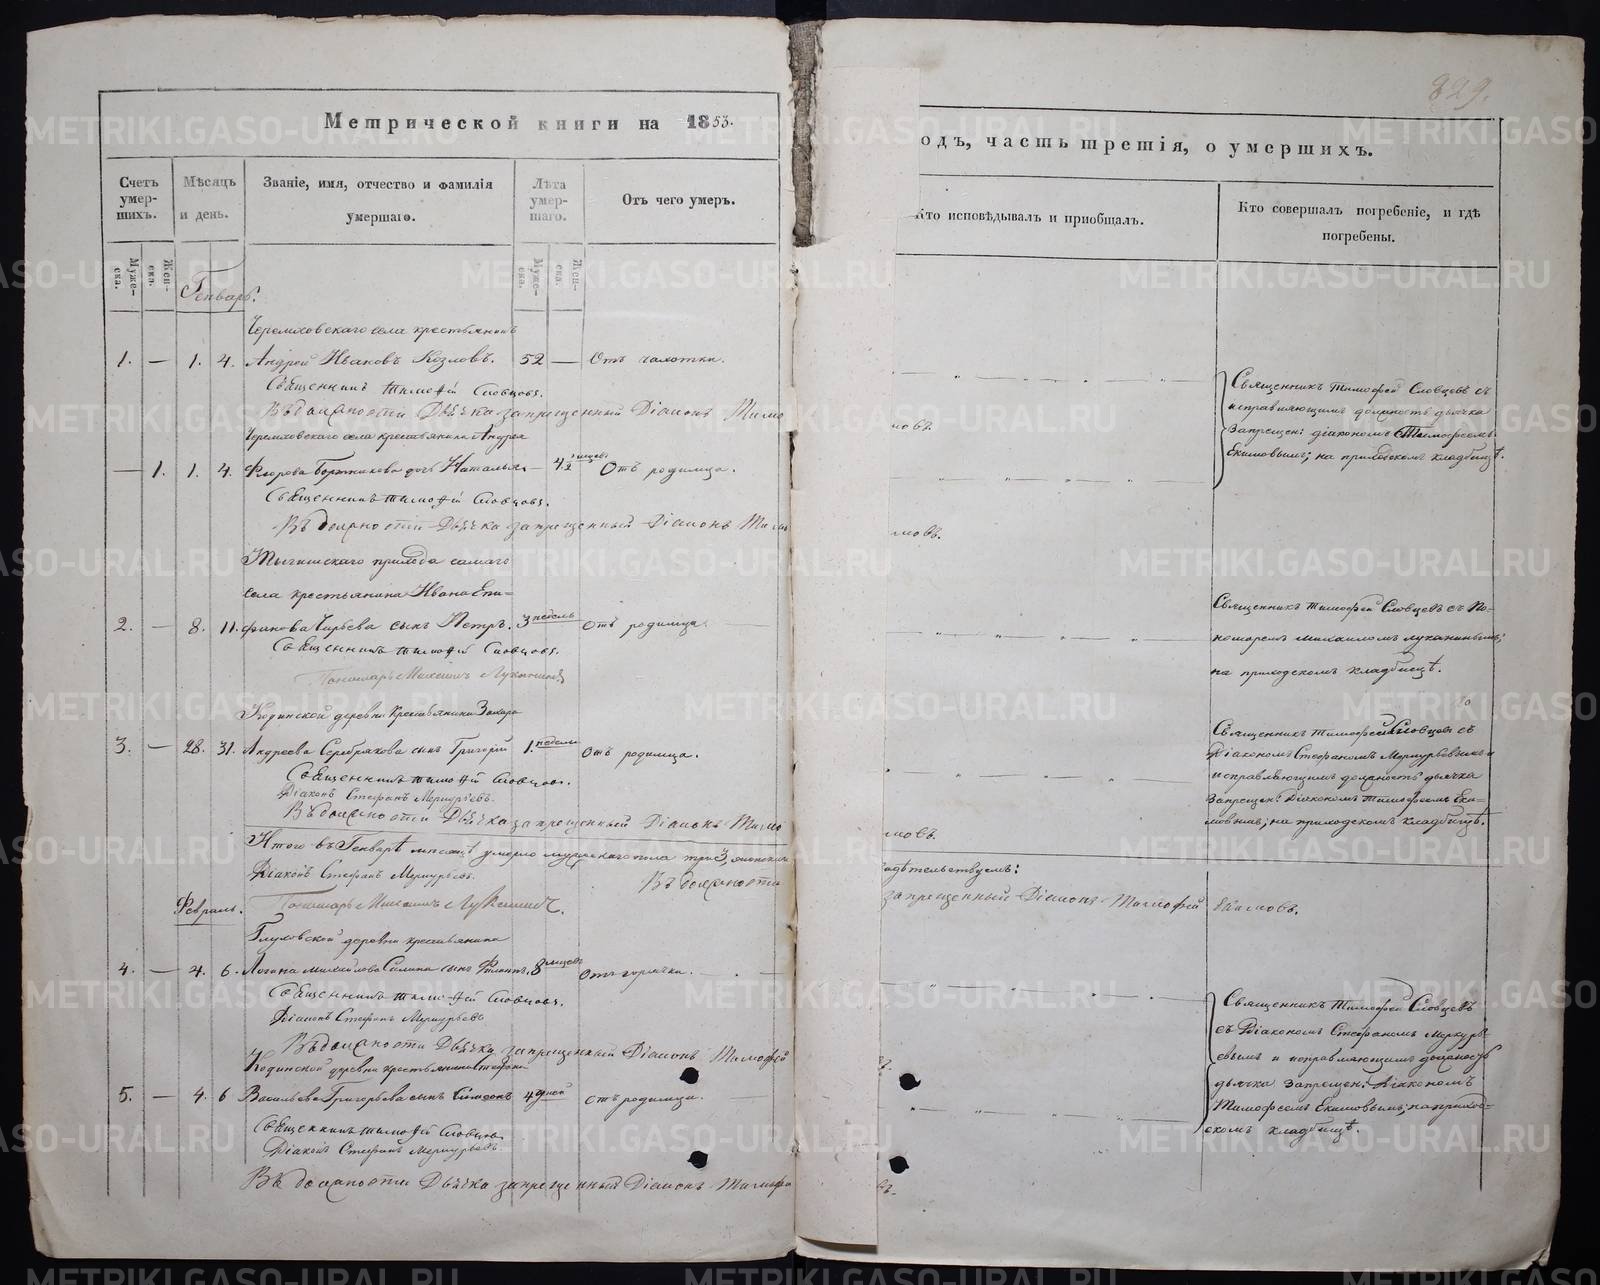 829.
Метрической книги на 1853.
одъ, часть третія, о умершихъ.
Счетъ умер-шихъ.
Мѣсяцъ и день.
Званіе, имя, отчество и фамилія умершаго.
Лѣта умер-шаго.
Отъ чего умеръ.
Кто исповѣдывалъ и пріобщалъ.
Кто совершалъ погребеніе, и гдѣ погребены.
Муже-ска.
Жен-ска.
Муже-ска.
Жен-ска.
Генварь.
Черемховскаго села крестьянинъ
1. — 1. 4. Андрей Ивановъ Козловъ. 52 — Отъ чахотки.
Священникъ Тимоѳей Словцовъ.
Въ должности Дьячка запрещенный Діаконъ Тимо
мовъ.
Священникъ Тимофей Словцевъ съ
исправляющимъ должность дьячка
Запрещен: діакономъ Тимофеемъ
Екимовымъ; на приходскомъ кладбищѣ.
Черемховскаго села крестьянина Андрея
— 1. 1. 4. Наталья — Отъ родимца.
Священникъ Тимоѳей Словцовъ.
Въ должности Дьячка запрещенный Діаконъ Тим
мовъ.
прихода самаго
села крестьянина Ивана Епи=
2. — 8. 11. фанова сынъ Петръ. 3 недель Отъ родимца. —
Священникъ Тимоѳей Словцовъ.
Пономарь Михаилъ Луканинъ
Священникъ Тимофей Словцевъ съ По-
номаремъ Михаиломъ Луканинымъ;
на приходскомъ кладбищѣ.
Кодинской деревни Крестьянина Захара
3. — 28. 31. Андреева Серебрякова сынъ Григорій 1. недели Отъ родимца.
Священникъ Тимоѳей Словцовъ.
Діаконъ Стефанъ Меркурьевъ.
Въ должности Дьячка запрещенный Діаконъ Тимо
мовъ.
Священникъ Тимофей Словцовъ съ
Діакономъ Стефаномъ Меркурьевымъ и
исправляющимъ должность дьячка
Запрещен: Діакономъ Тимофеемъ Еки-
мовымъ; на приходскомъ кладбищѣ.
Итого въ Генварѣ месяцѣ умерло мужескаго пола три 3, женскаго
идѣтельствуемъ:
Діаконъ Стефанъ Меркурьевъ.
Въ должности
запрещенный Діаконъ Тимофей Екимовъ.
Пономарь Михаилъ Луканинъ.
Февраль.
Глуховской деревни крестьянина
4. — 4. 6. Логина Михайлова сынъ 8 месецъ Отъ горячки. — —
Священникъ Тимоѳей Словцовъ.
Діаконъ Стефанъ Меркурьевъ
Въ должности Дьячка запрещенный Діаконъ Тимофей
Священникъ Тимофей Словцевъ
съ Діакономъ Стефаномъ Меркурь-
евымъ и исправляющимъ должность
дьячка Запрещен: Діакономъ
Тимофеемъ Екимовымъ; на приход-
скомъ кладбищѣ.
Кодинской деревни крестьянина
5. — 4. 6 Васильева Григорьева сынъ Симеонъ 4 дней отъ родимца. —
Священникъ Тимоѳей Словцовъ
Діаконъ Стефанъ Меркурьевъ.
Въ должности Дьячка запрещенный Діаконъ Тимофе
METRIKI.GASO-URAL.RU